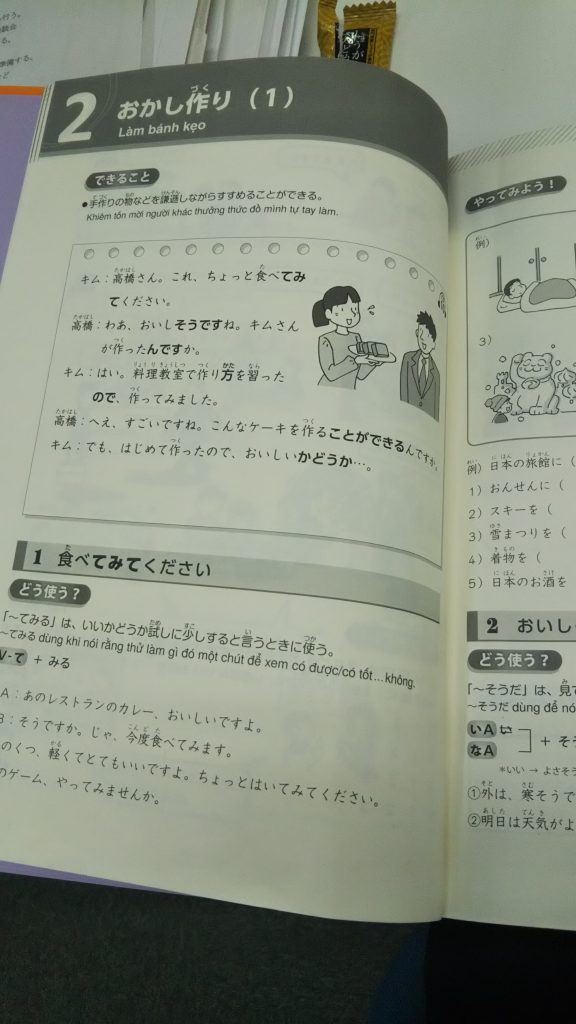 2 おかし作り（1）
Làm bánh kẹo
できること
●手作りの物などを謙遜しながらすすめることができる。
Khiêm tốn mời người khác thưởng thức đồ mình tự tay làm.
キム：高橋さん。これ、ちょっと食べてみ
てください。
高橋：わあ、おいしそうですね。キムさん
が作ったんですか。
キム：はい。料理教室で作り方を習った
ので、作ってみました。
高橋：へえ、すごいですね。こんなケーキを作ることができるんですか。
キム：でも、はじめて作ったので、おいしいかどうか…。
1 食べてみてください
どう使う？
「～てみる」は、いいかどうか試しに少しすると言うときに使う。
～てみる dùng khi nói rằng thử làm gì đó một chút để xem có được/có tốt…không.
V-て + みる
A：あのレストランのカレー、おいしいですよ。
B：そうですか。じゃ、今度食べてみます。
のくつ、軽くてとてもいいですよ。ちょっとはいてみてください。
のゲーム、やってみませんか。
やってみよう！
例）
3）
例）日本の旅館に（
1）おんせんに（
2）スキーを（
3）雪まつりを（
4）着物を（
5）日本のお酒を
2 おいし
どう使う？
「～そうだ」は、見
～そうだ dùng để nó
いA
なA
+ そ
*いい → よさそ
①外は、寒そうで
②明日は天気がよ